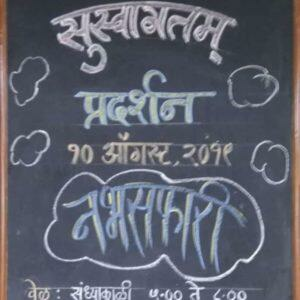 सुस्वागतम्
प्रदर्शन
१० ऑगस्ट, २०१९
नभसफारी
वेळ : संध्याकाळी ५:०० ते ८:००